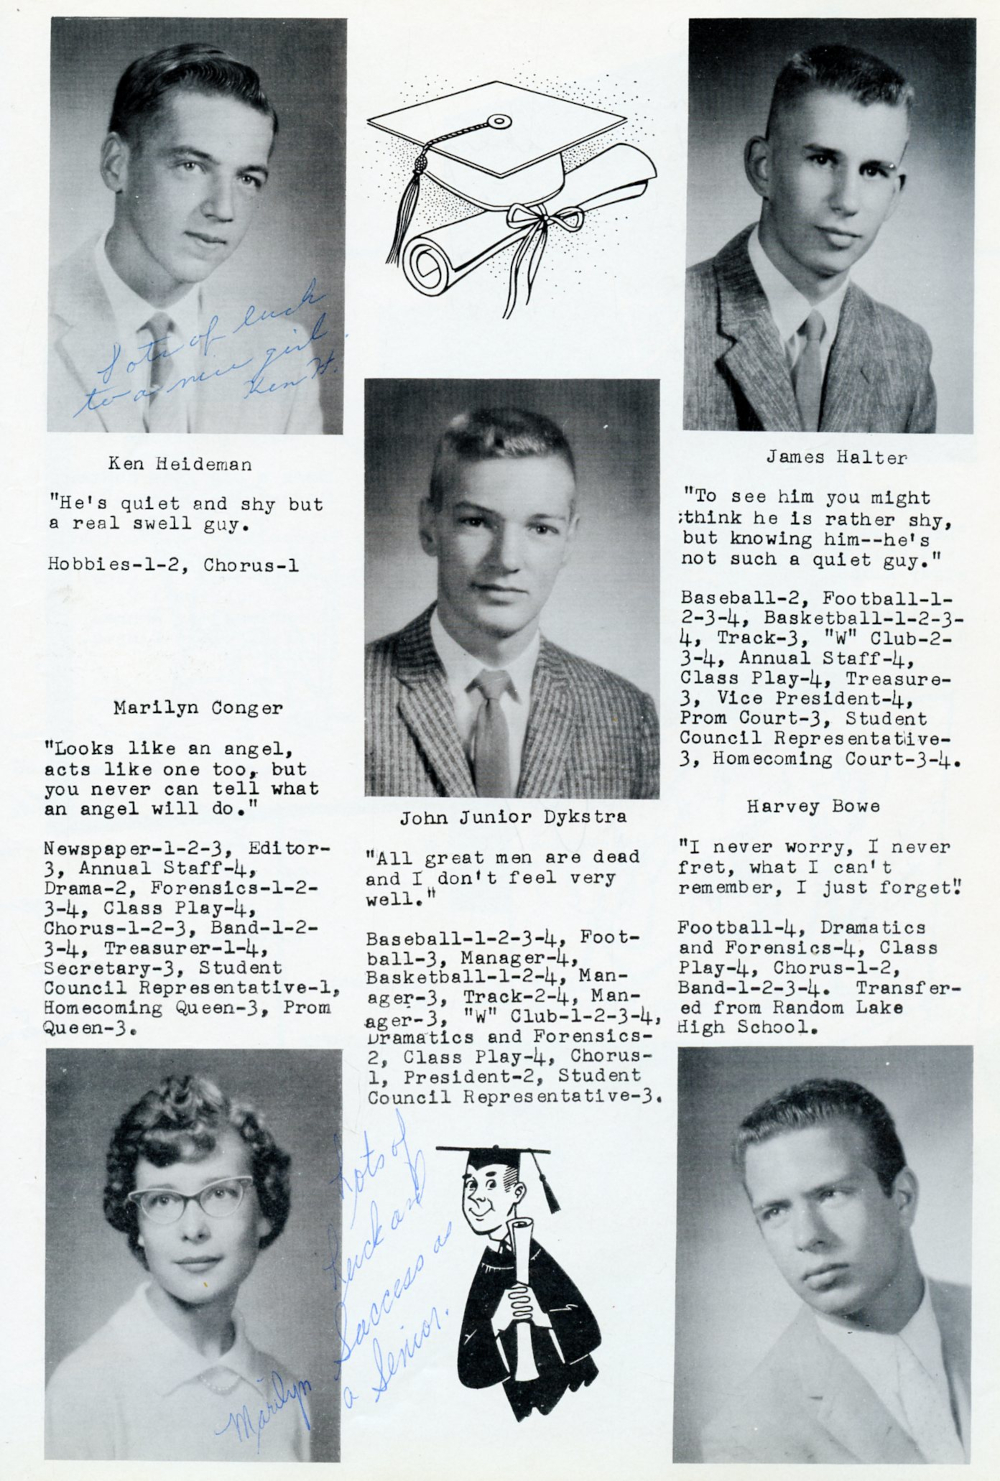 Lots of luck
to a nice girl
Ken H.
Ken Heideman
"He's quiet and shy but
a real swell guy.
Hobbies-1-2, Chorus-1
Marilyn Conger
"Looks like an angel,
acts like one too, but
you never can tell what
an angel will do."
Newspaper-1-2-3, Editor-
3, Annual Staff-4,
Drama-2, Forensics-1-2-
3-4, Class Play-4,
Chorus-1-2-3, Band-1-2-
3-4, Treasurer-1-4,
Secretary-3, Student
Council Representative-1,
Homecoming Queen-3, Prom
Queen-3.
John Junior Dykstra
"All great men are dead
and I don't feel very
well."
Baseball-1-2-3-4, Foot-
ball-3, Manager-4,
Basketball-1-2-4, Man-
ager-3, Track-2-4, Man-
ager-3, "W" Club-1-2-3-4,
Dramatics and Forensics-
2, Class Play-4, Chorus-
1, President-2, Student
Council Representative-3.
Lots of
Luck and
Success as
a Senior.
Marilyn
James Halter
"To see him you might
;think he is rather shy,
but knowing him--he's
not such a quiet guy."
Baseball-2, Football-1-
2-3-4, Basketball-1-2-3-
4, Track-3, "W" Club-2-
3-4, Annual Staff-4,
Class Play-4, Treasure-
3, Vice President-4,
Prom Court-3, Student
Council Representative-
3, Homecoming Court-3-4.
Harvey Bowe
"I never worry, I never
fret, what I can't
remember, I just forget"
Football-4, Dramatics
and Forensics-4, Class
Play-4, Chorus-1-2,
Band-1-2-3-4. Transfer-
ed from Random Lake
High School.